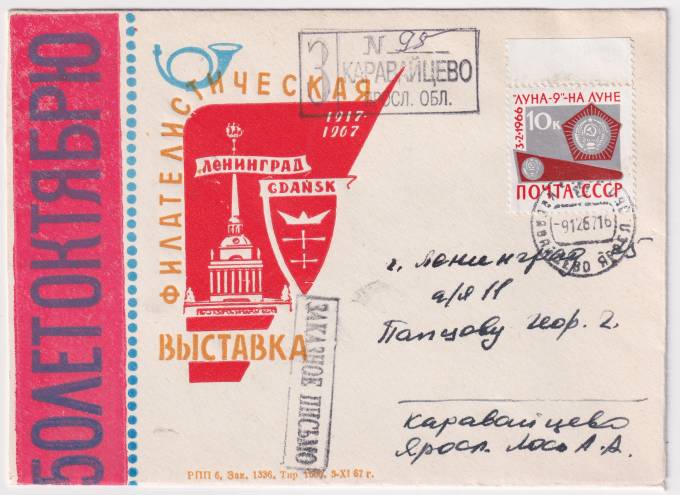 50 ЛЕТ ОКТЯБРЮ
ФИЛАТЕЛИСТИЧЕСКАЯ
1917-
1967
ЛЕНИНГРАД
GDAŃSK
ВЫСТАВКА
З
N 95
КАРАВАЙЦЕВО
ЯРОСЛ. ОБЛ.
"ЛУНА-9"-НА ЛУНЕ
3-2-1966
10к
ПОЧТА СССР
-9126716
ЗАКАЗНОЕ ПИСЬМО
г. Ленинград
а/я 11
Папцову Геор. Г.
Караваицево
Яросл. Лось А.А.
РПП 6, Зак. 1336, Тир 1500, 3-XI 67 г.